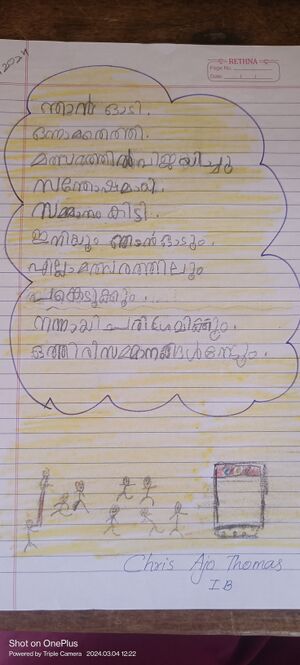 2024
RETHNA
Page No.
Date: / /
ഞാൻ ഓടി.
ഒന്നാമതെത്തി.
മത്സരത്തിൽ വിജയിച്ചു
സന്തോഷമായി.
സമ്മാനം കിട്ടി.
ഇനിയും ഞാൻ ഓടും.
എല്ലാ മത്സരത്തിലും
പങ്കെടുക്കും.
നന്നായി പരിശീലിക്കും.
ഒത്തിരി സമ്മാനങ്ങൾ നേടും.
Chris Ajo Thomas
I B
Shot on OnePlus
Powered by Triple Camera 2024.03.04 12:22